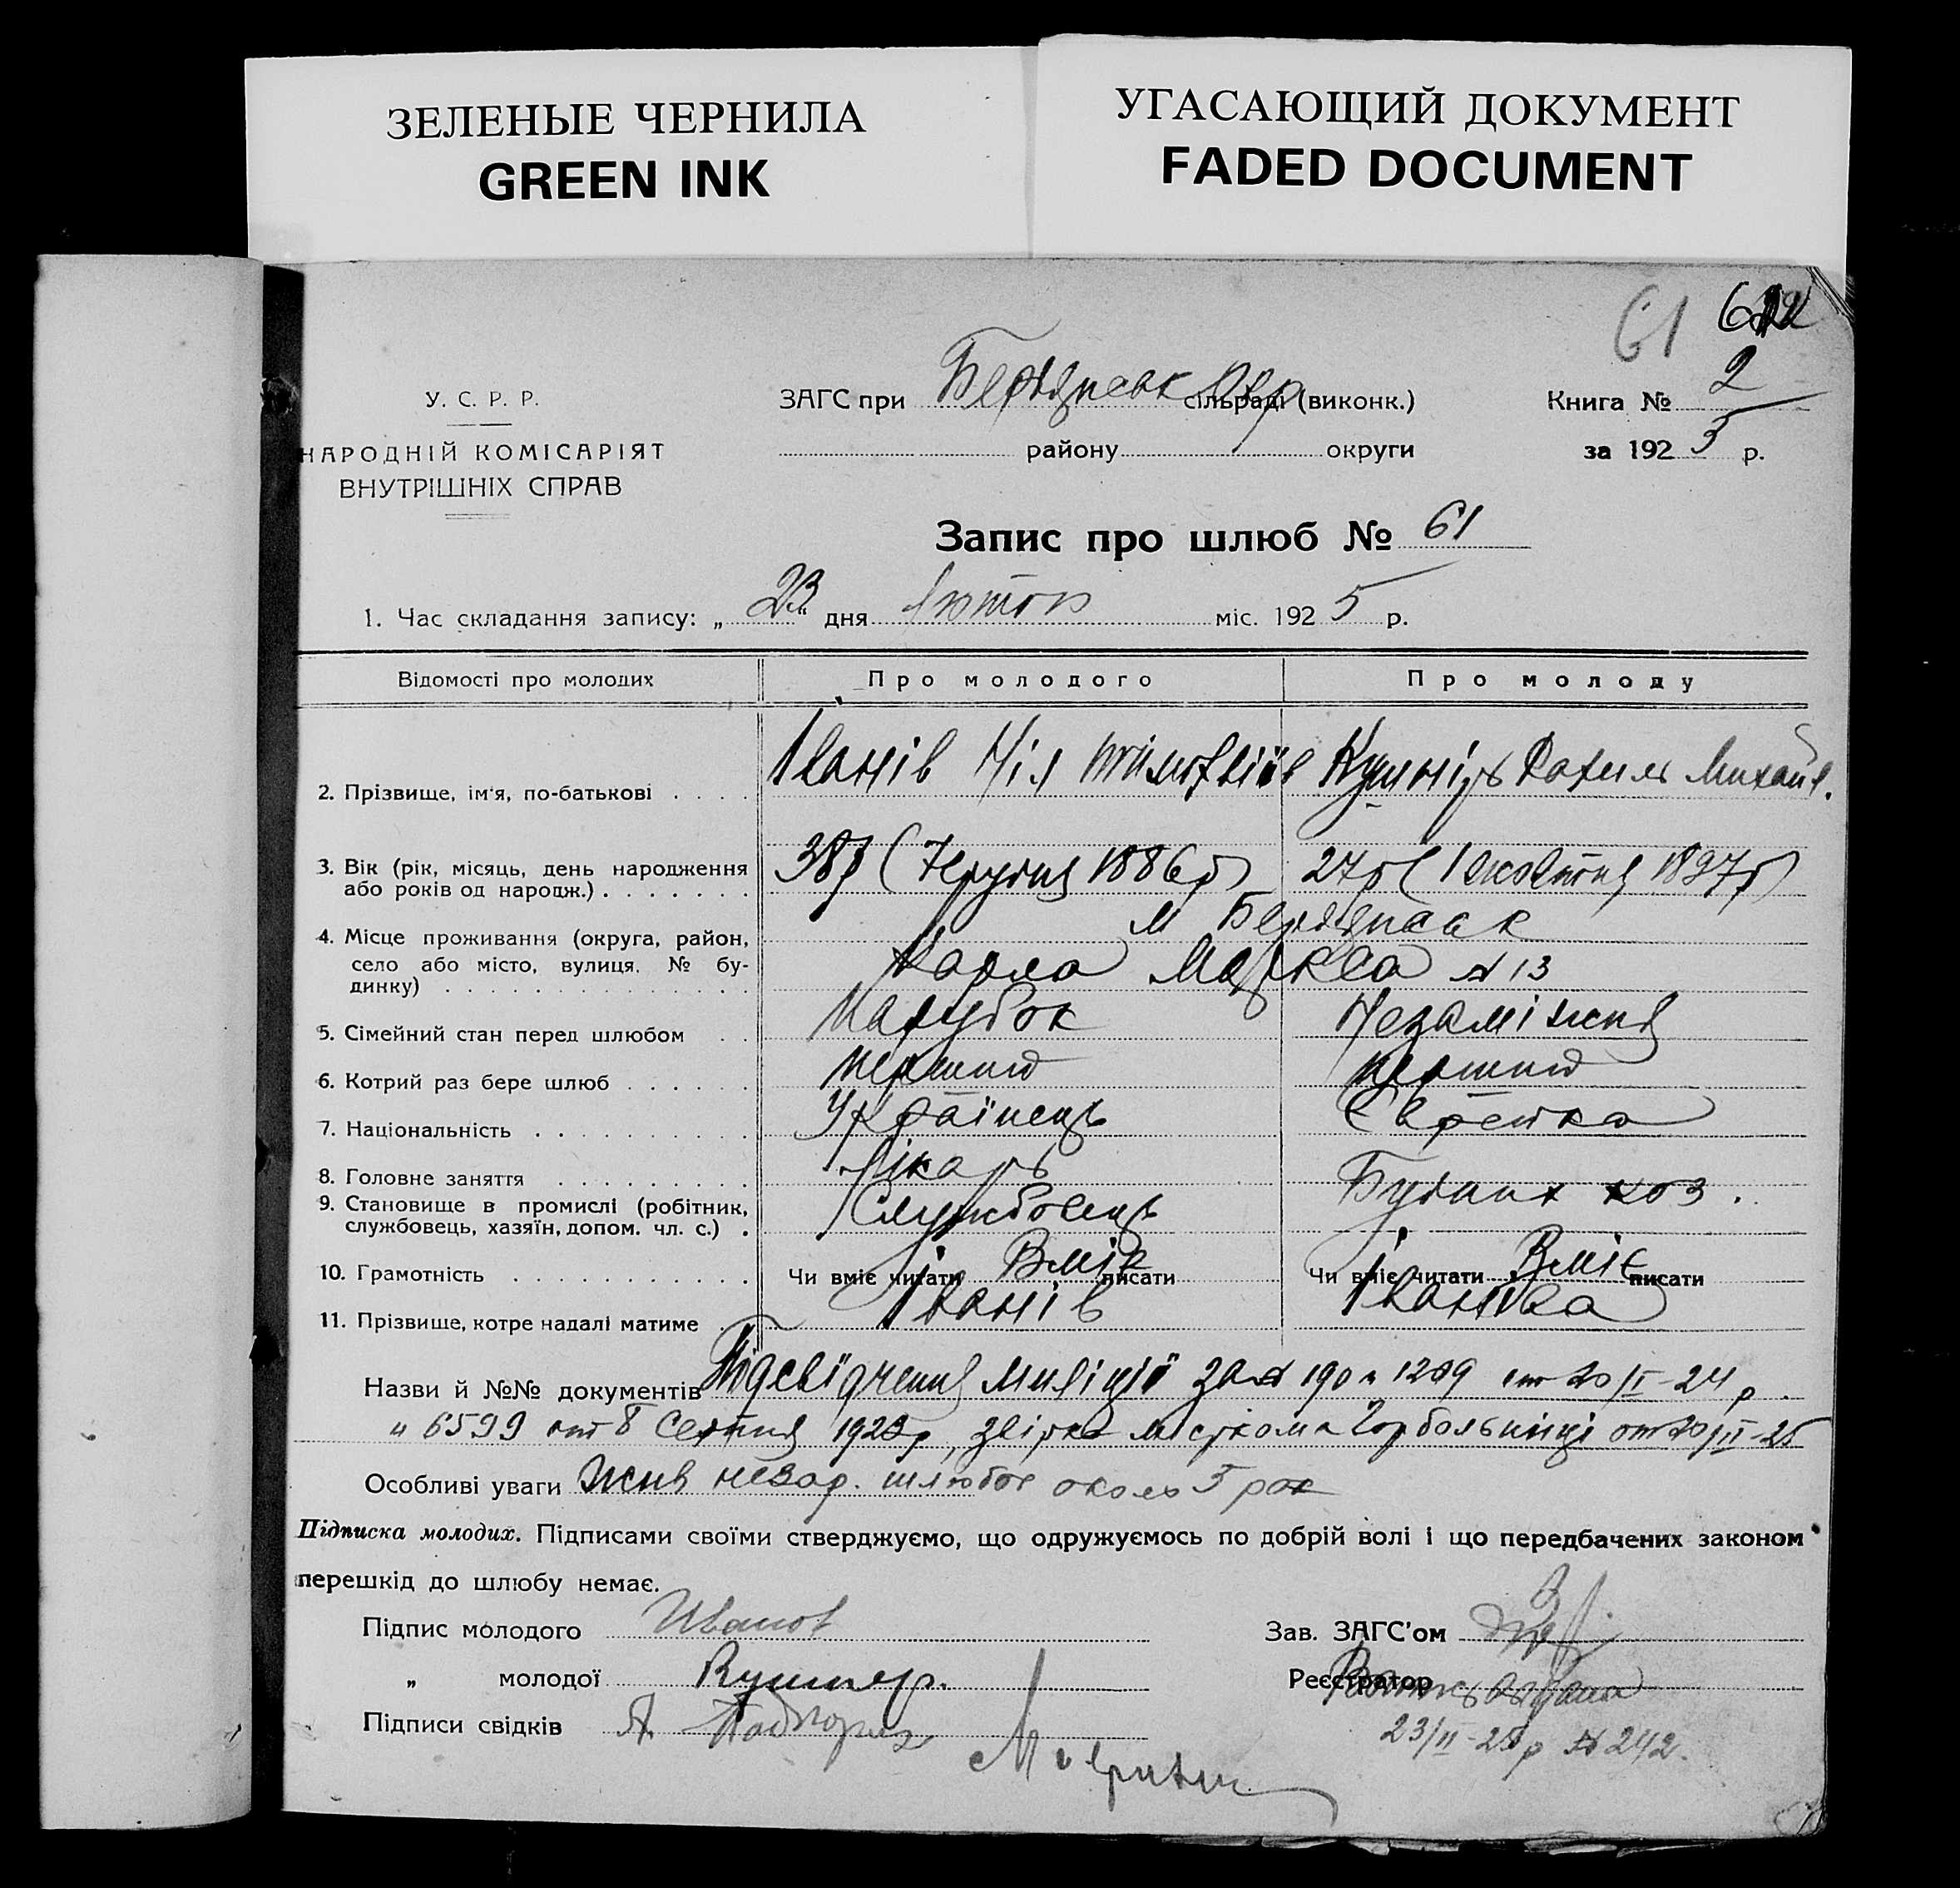 ЗЕЛЕНЫЕ ЧЕРНИЛА
GREEN INK
УГАСАЮЩИЙ ДОКУМЕНТ
FADED DOCUMENT
61
У. С. Р. Р.
НАРОДНІЙ КОМІСАРІЯТ
ВНУТРІШНІХ СПРАВ
ЗАГС при Бердянськ сільраді (виконк.)
району округи
Книга № 2
за 192 5 р.
Запис про шлюб № 61
1. Час складання запису: „ 23 “ дня міс. 192 5 р.
Відомості про молодих Про молодого Про молоду
2. Прізвище, ім'я, по-батькові Іванів Ніл Михайл.
3. Вік (рік, місяць, день народження
або років од народж.) 38р (7 грудня 1886р) 27р (1 жовтня 1897р)
4. Місце проживання (округа, район,
село або місто, вулиця, № бу-
динку)
м Бердянськ
Карла Маркса № 13
5. Сімейний стан перед шлюбом Парубок Незаміжня
6. Котрий раз бере шлюб перший перший
7. Національність Українець Єврейка
8. Головне заняття Лікарь
9. Становище в промислі (робітник,
службовець, хазяїн, допом. чл. с.) Службовець
10. Грамотність Чи вміє читати Вміє писати Чи вміє читати Вміє писати
11. Прізвище, котре надалі матиме Іванів Іванова
Назви й №№ документів міліції за № 190
„ 6599 от 8 Серпня от 20/II-25
Особливі уваги незар. шлюбом около 5 рок
Підписка молодих. Підписами своїми стверджуємо, що одружуємось по добрій волі і що передбачених законом
перешкід до шлюбу немає.
Підпис молодого Иванов
„ молодої Кушнер.
Підписи свідків А.
Зав. ЗАГС'ом
Реєстратор
23/II-25р № 242.